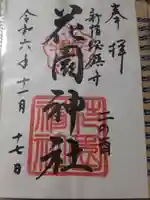 奉拝
新宿総鎮守
花園神社
二の酉
令和六年十一月
十七日